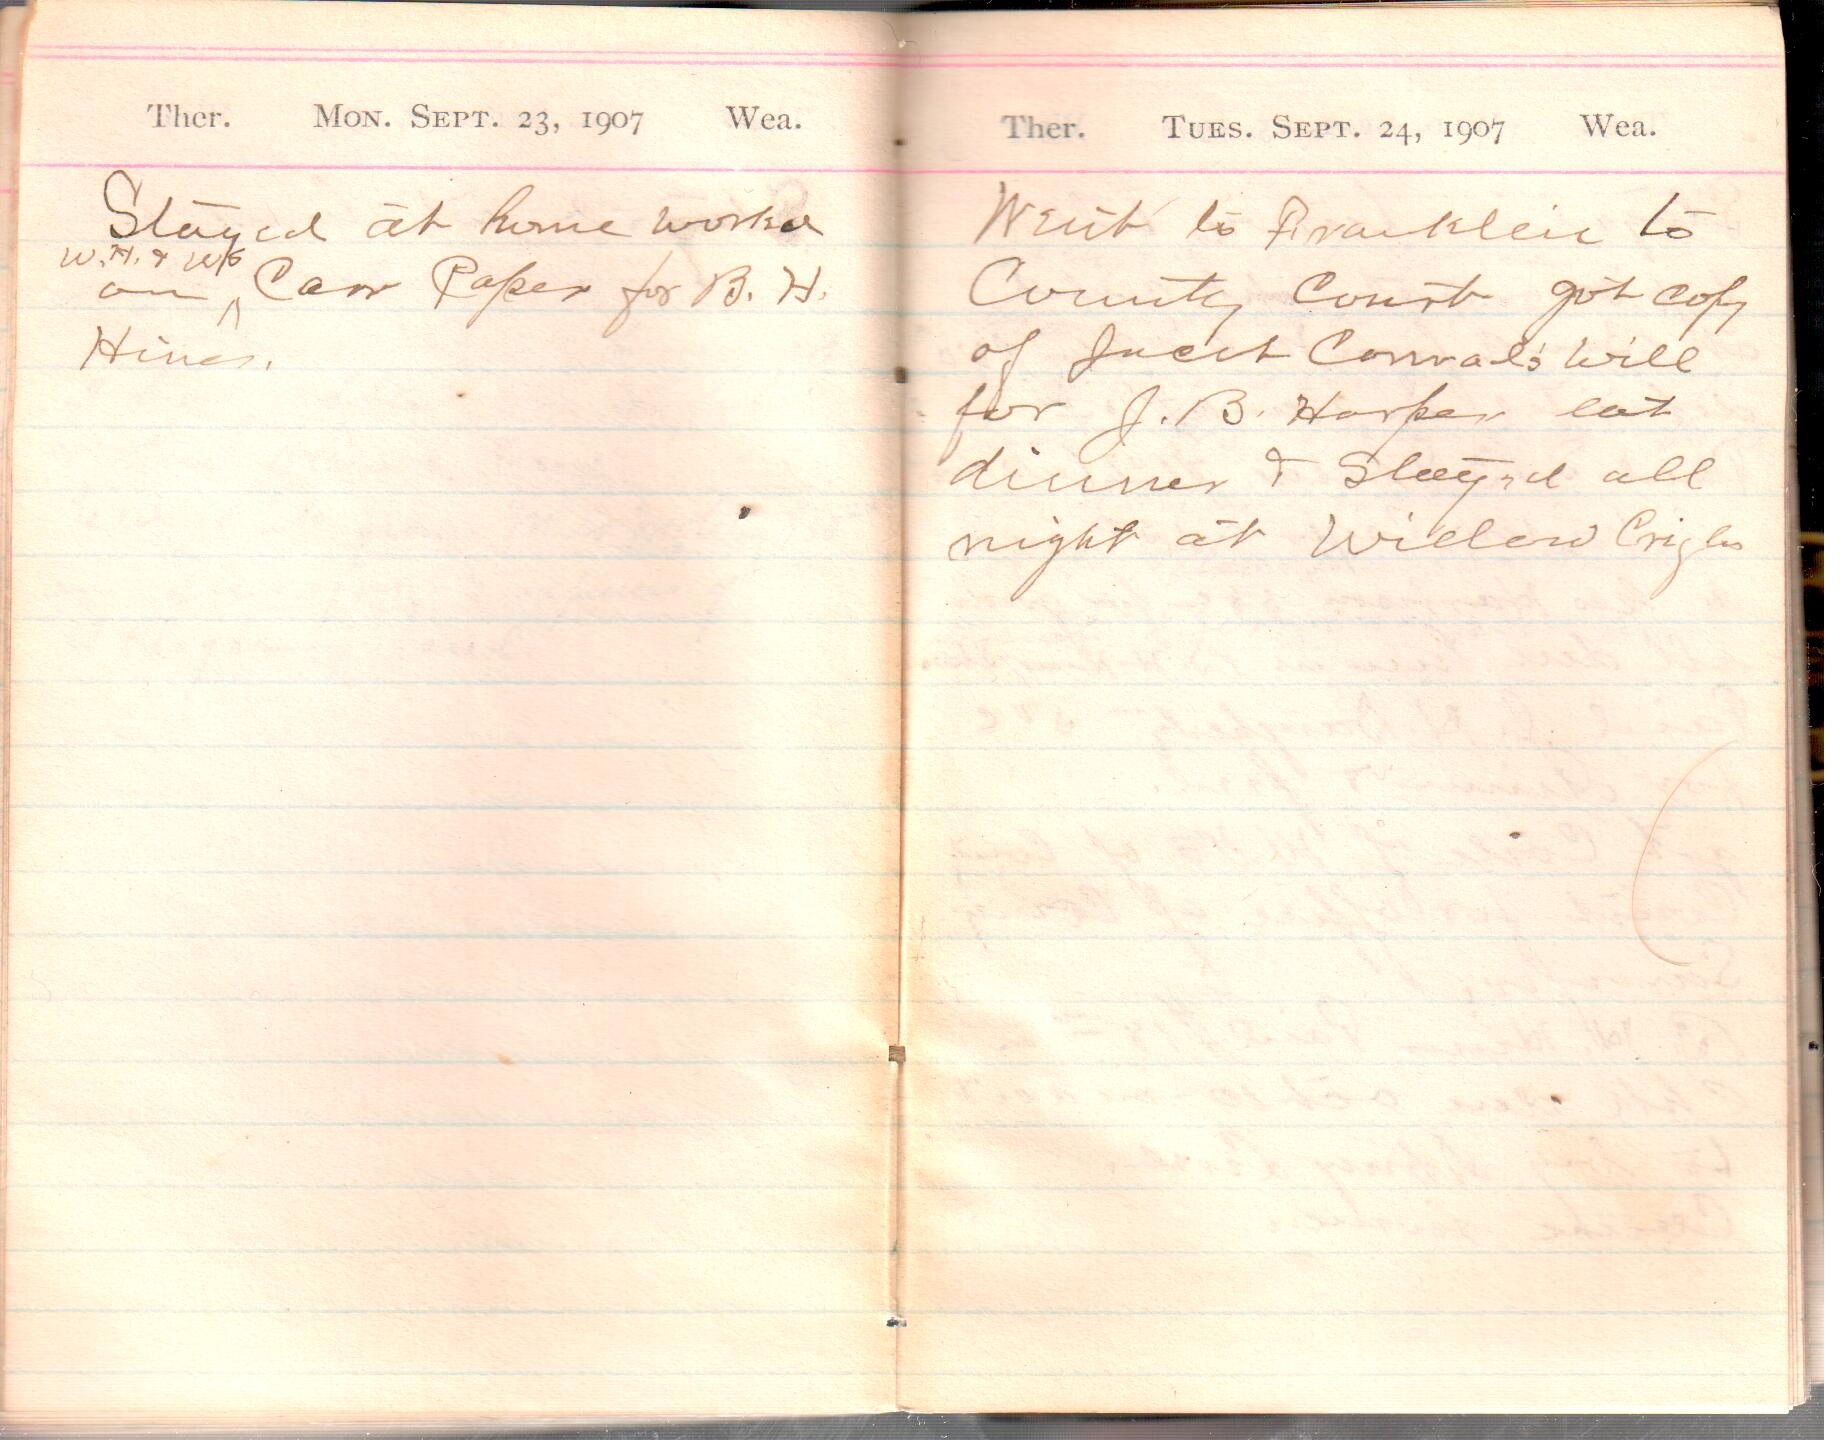 Ther. Mon. Sept. 23, 1907 Wea.
Stayed at home worked
W. H. & W S
on ^ Carr Paper for B. H.
Hiner.
Ther. Tues. Sept. 24, 1907 Wea.
Went to Franklin to
County Court got copy
of Jacob Conrad's will
for J. B. Harper eat
dinner & Stayed all
night at Willow